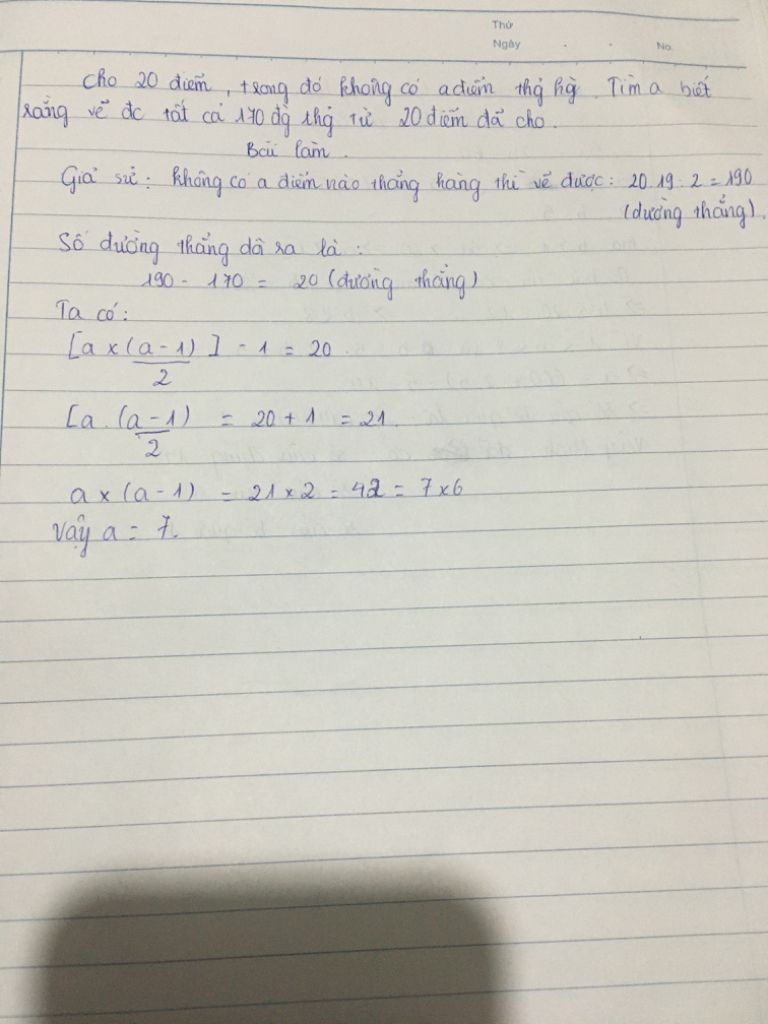 Thứ
Ngày . . No.
Cho 20 điểm, trong đó không có a điểm thg hg. Tìm a biết
rằng vẽ đc tất cả 170 đg thg từ 20 điểm đã cho.
Bài làm.
Giả sử: không có a điểm nào thẳng hàng thì vẽ được: 20.19:2=190
(đường thẳng).
Số đường thẳng dôi ra là:
190 - 170 = 20 (đường thẳng)
Ta có:
[a x (a-1)] - 1 = 20
2
[a . (a-1) = 20 + 1 = 21.
2
a x (a-1) = 21 x 2 = 42 = 7 x 6
Vậy a = 7.